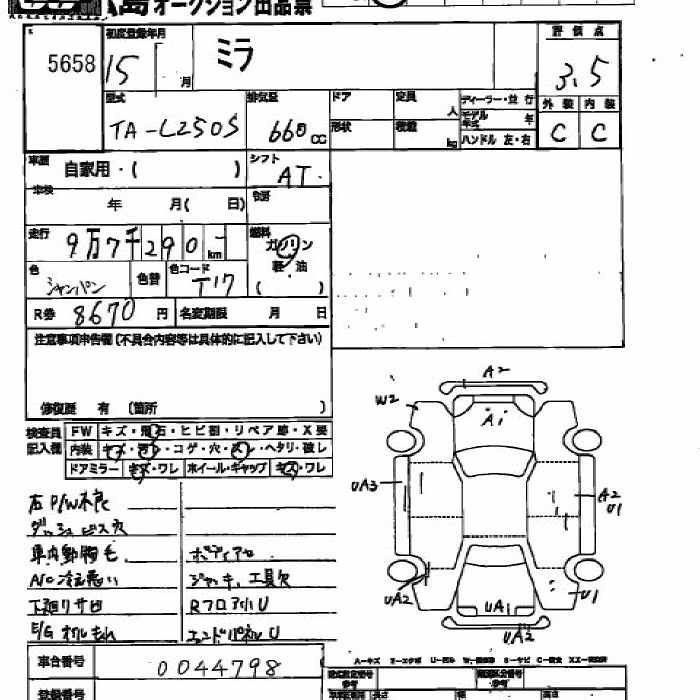 島オークション出品票
5658
初度登録年月
15 月
ミラ
評価点
3.5
型式
TA-L250S
排気量
660 CC
ドア
定員 人
ディーラー・並行
モデル年式 年
形状
積載 kg
ハンドル 左・右
外装 内装
C C
車歴 自家用・( )
シフト AT
車検 年 月( 日)
走行 9万7千290 km
燃料 ガソリン
軽油
( )
色 シャンパン
色替
色コード T17
R券 8670 円
名変期限 月 日
注意事項申告欄(不具合内容等は具体的に記入して下さい)
修復歴 有 (箇所 )
検査員記入欄
FW キズ・飛石・ヒビ割・リペア跡・X要
内装 キズ・汚レ・コゲ・穴・スレ・ヘタリ・破レ
ドアミラー キズ・ワレ ホイール・キャップ キズ・ワレ
右P/W不良
ダッシュビス穴
車内動物毛
A/C冷え悪い
下廻りサビ
E/Gオイルもれ
ジャッキ、工具欠
RフロアU
エンドパネルU
A2
W2
A1
UA3
A2
U1
UA2
UA1
U1
UA2
車台番号 0044798
登録番号
A-キズ